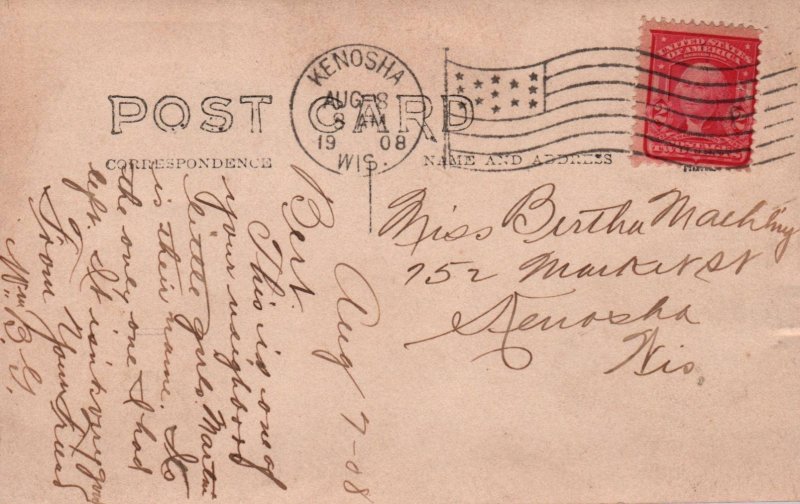 POST CARD
CORRESPONDENCE
NAME AND ADDRESS
KENOSHA
AUG 8
8 AM
1908
WIS.
UNITED STATES
OF AMERICA
2 2
TWO CENTS
Miss Bertha
752 Market St
Kenosha
Wis.
Aug 7-08
Bert.
This is one of
your neighbors
little girls. Martin
is their name. Is
the only one I had
left. It isn't very good
From Your Friend
Wm. B. G.